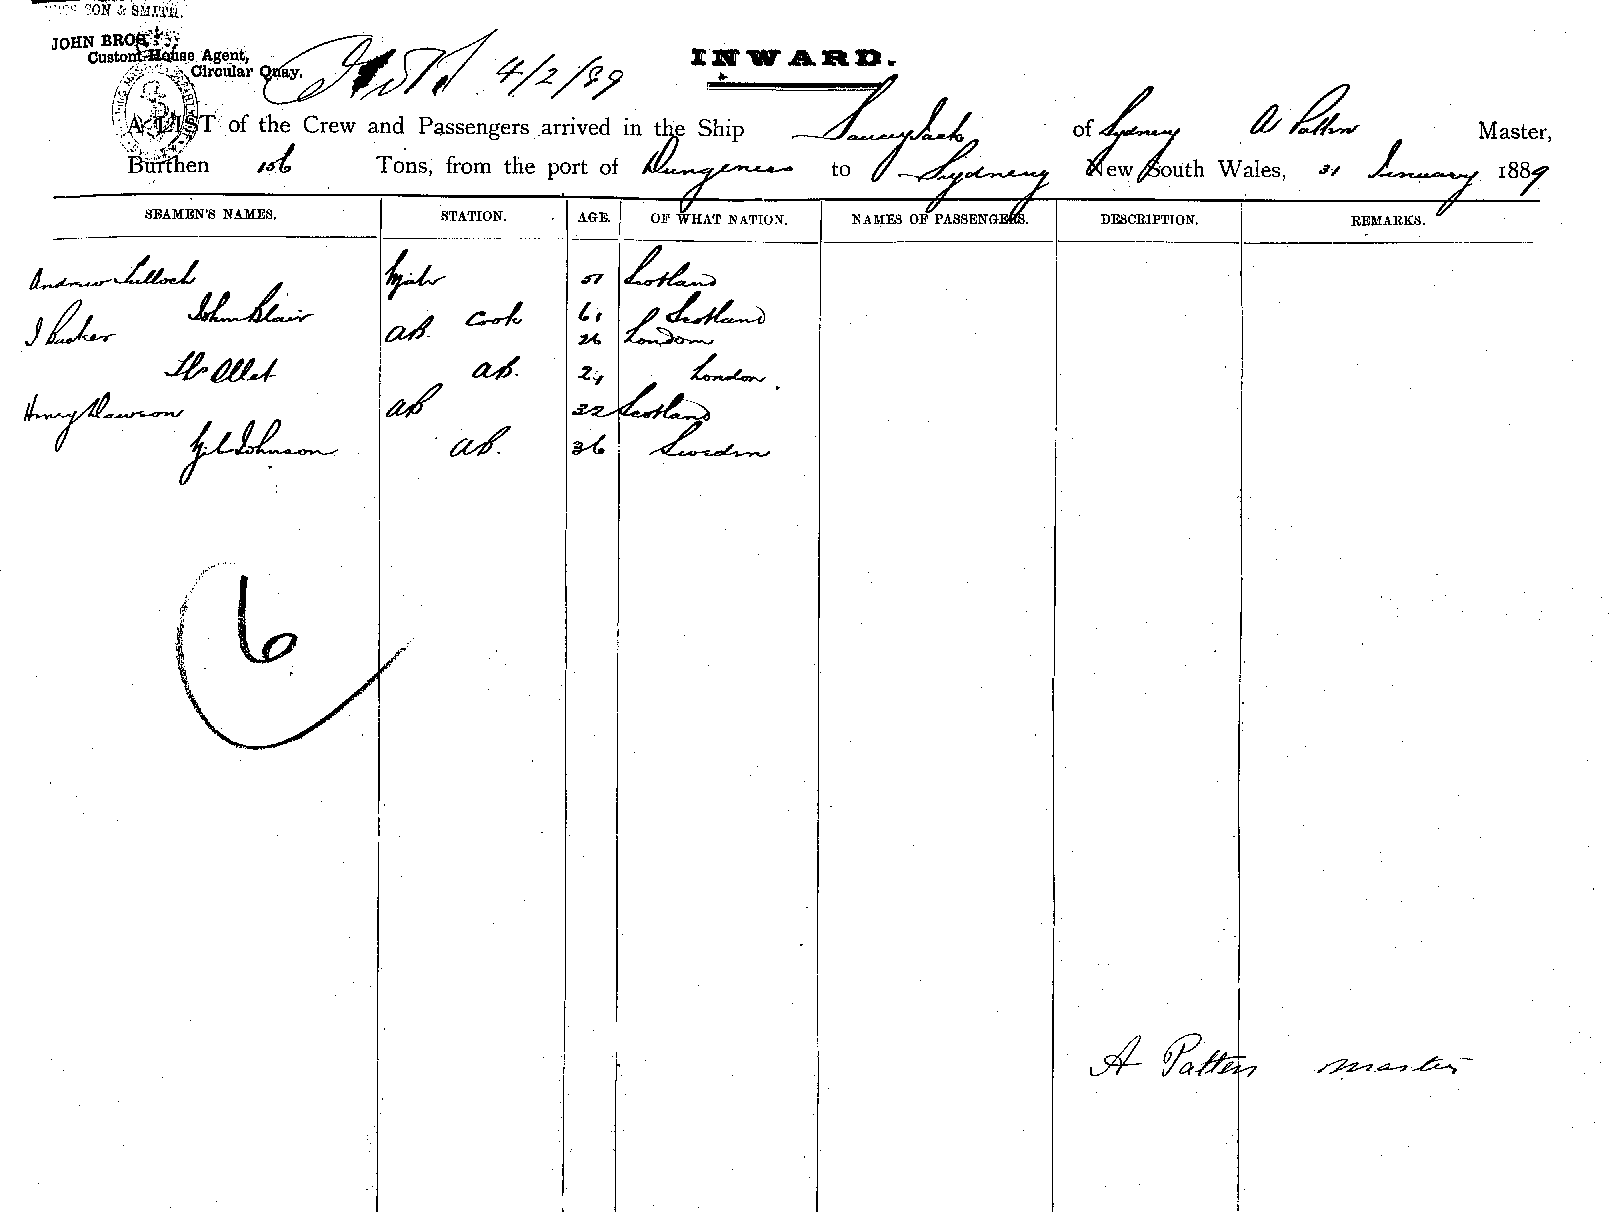 SON & SMITH.
JOHN BROS.
Custom House Agent,
Circular Quay.
4/2/89
INWARD.
A LIST of the Crew and Passengers arrived in the Ship Saucy Jack of Sydney A Patten Master,
Burthen 106 Tons, from the port of Dungeness to Sydney New South Wales, 31 January 1889
SEAMEN'S NAMES. STATION. AGE. OF WHAT NATION. NAMES OF PASSENGERS. DESCRIPTION. REMARKS.
Andrew Tulloch Mate 51 Scotland
John Blair Cook 61 Scotland
J AB. 26 London
AB. 24 London.
Henry Dawson AB 32 Scotland
Johnson AB. 36 Sweden
6
A Patten master